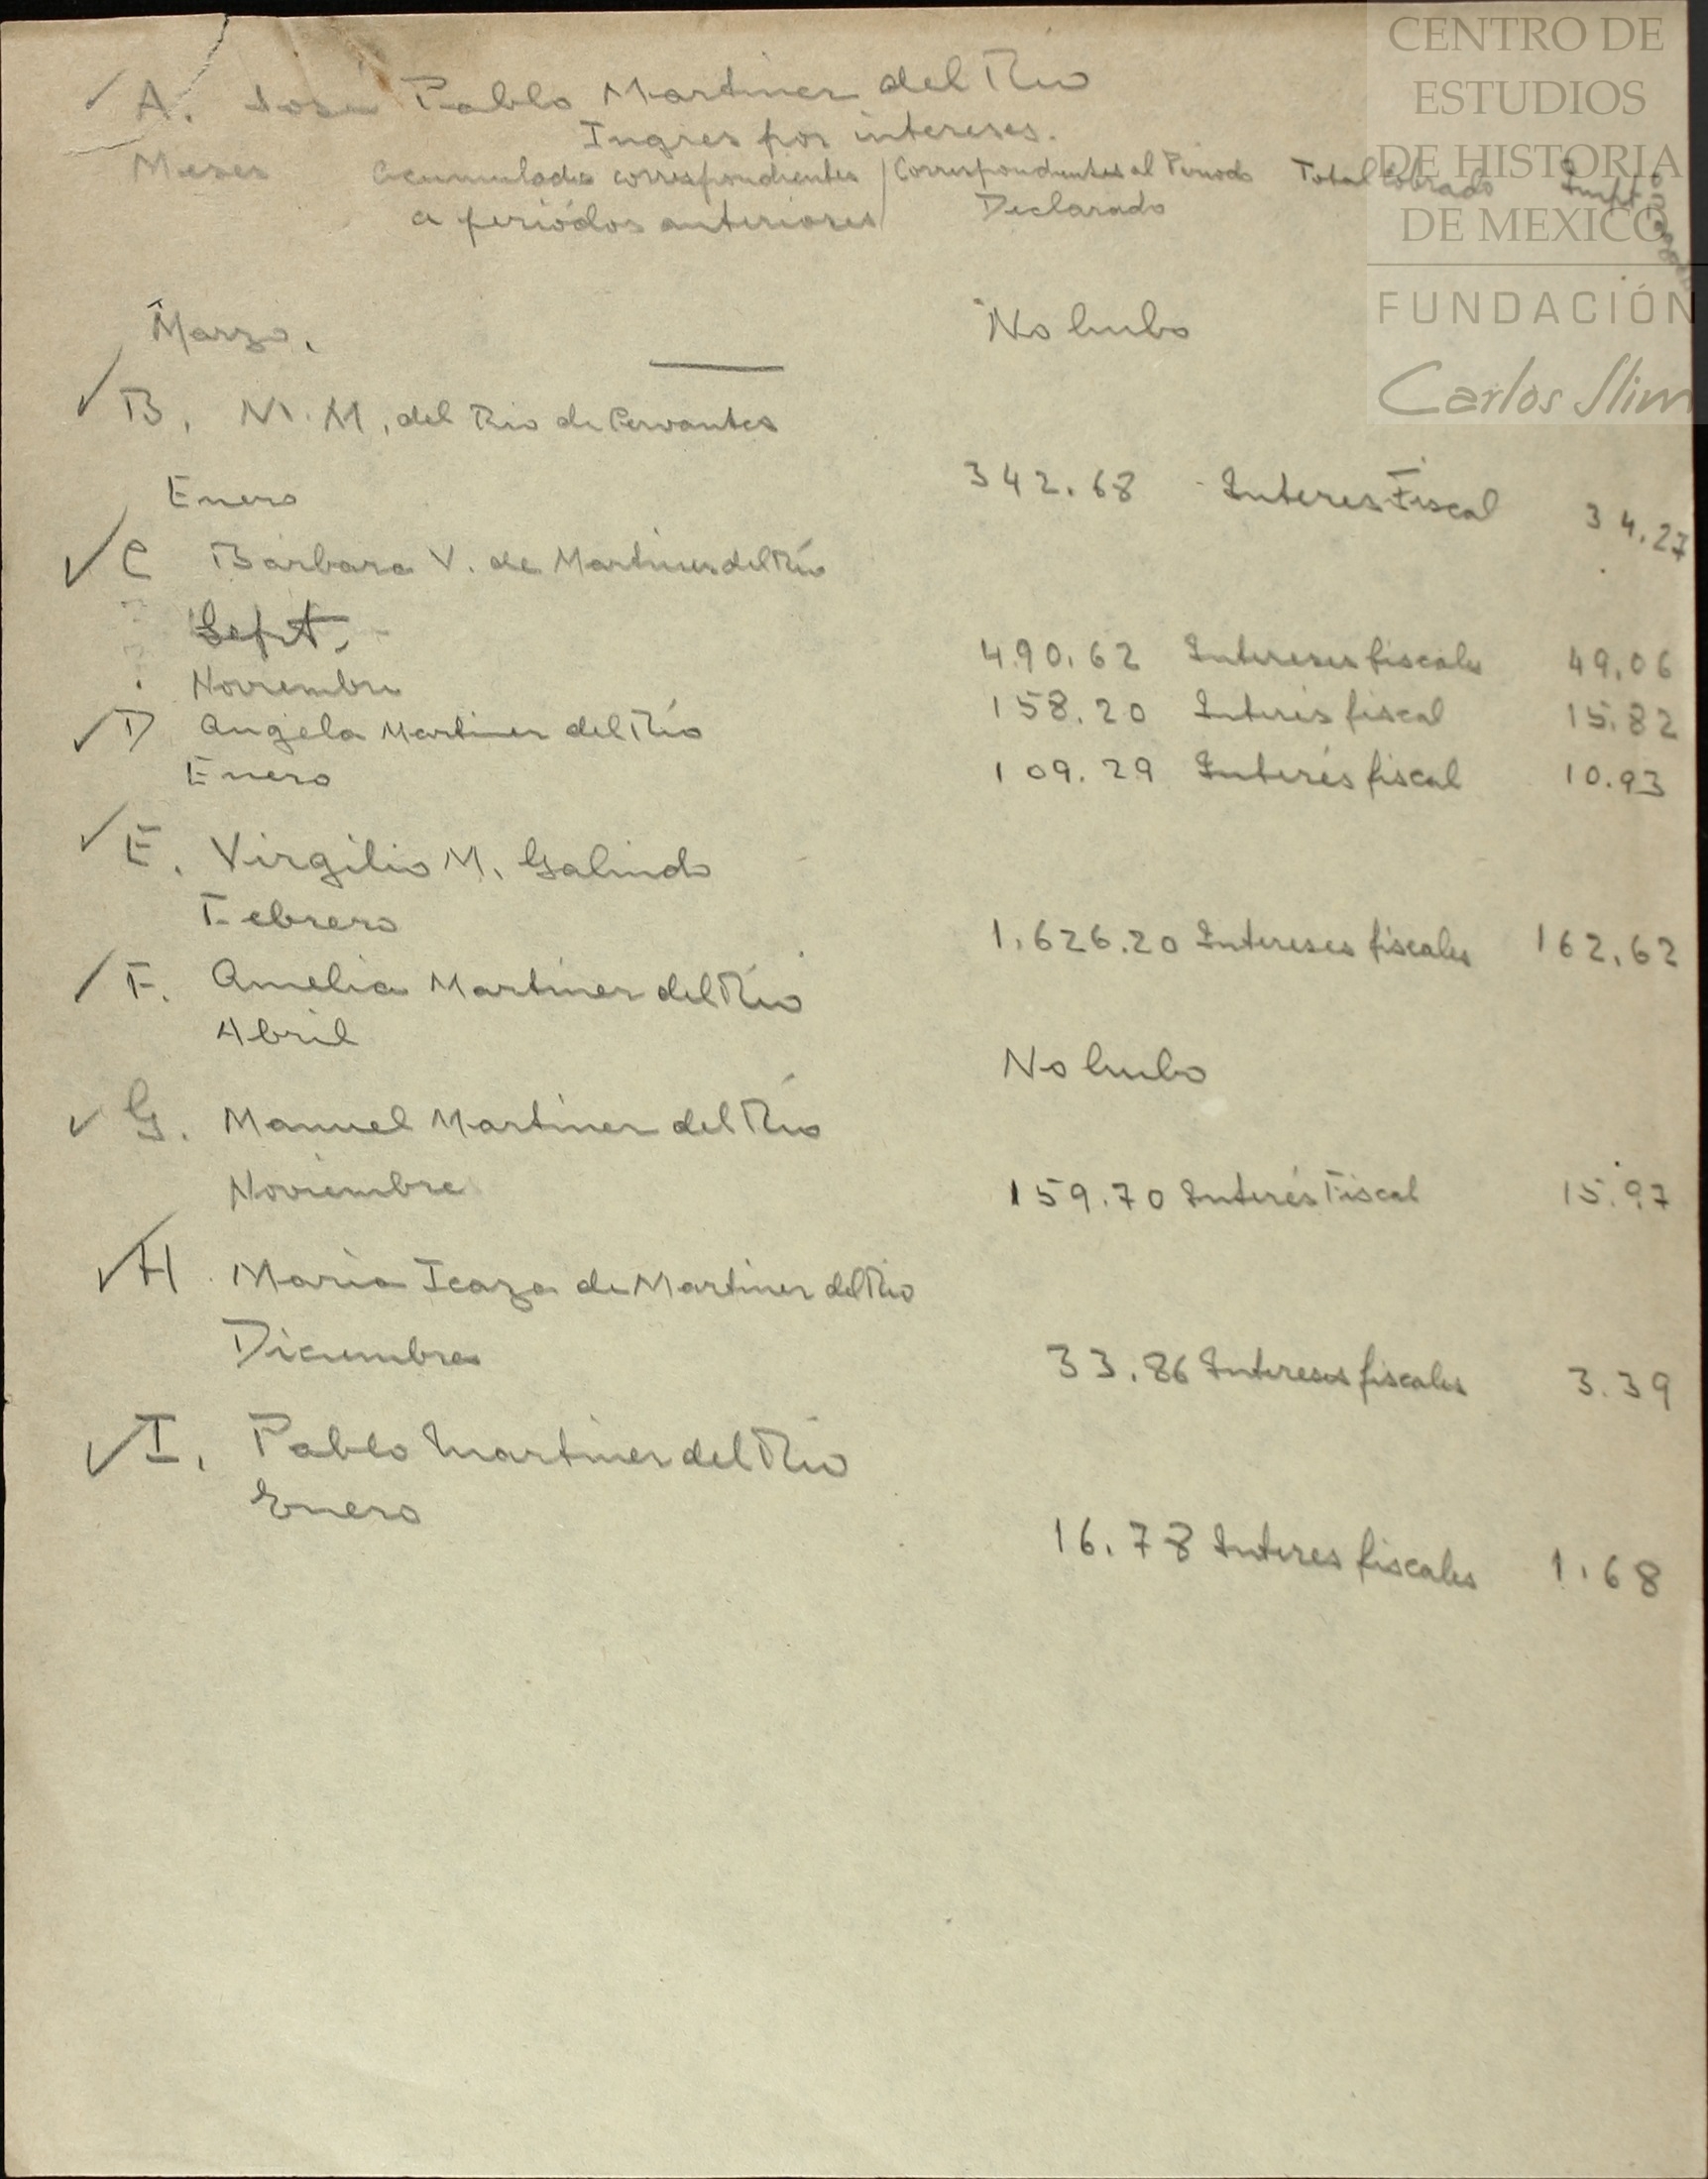 CENTRO DE
ESTUDIOS
DE HISTORIA
DE MEXICO
FUNDACIÓN
Carlos Slim
A. José Pablo Martinez del Rio
Ingres por intereses.
Meses Acumulados correspondientes Correspondientes al Periodo Total Cobrado Impto
a periódos anteriores Declarado
Marzo. No hubo
B. M. M. del Rio de Cervantes
Enero 342.68 Interes Fiscal 34.27
C Barbara V. de Martinez del Rio
Sept. 490.62 Intereses fiscales 49.06
Noviembre 158.20 Interés fiscal 15.82
D Angela Martinez del Río
Enero 109.29 Interés fiscal 10.93
E. Virgilio M. Galindo
Febrero 1.626.20 Intereses fiscales 162.62
F. Amelia Martinez del Río
Abril No hubo
G. Manuel Martinez del Río
Noviembre 159.70 Interés Fiscal 15.97
H Maria Icaza de Martinez del Rio
Diciembre 33.86 Intereses fiscales 3.39
I. Pablo Martinez del Rio
Enero 16.78 Interes fiscales 1.68